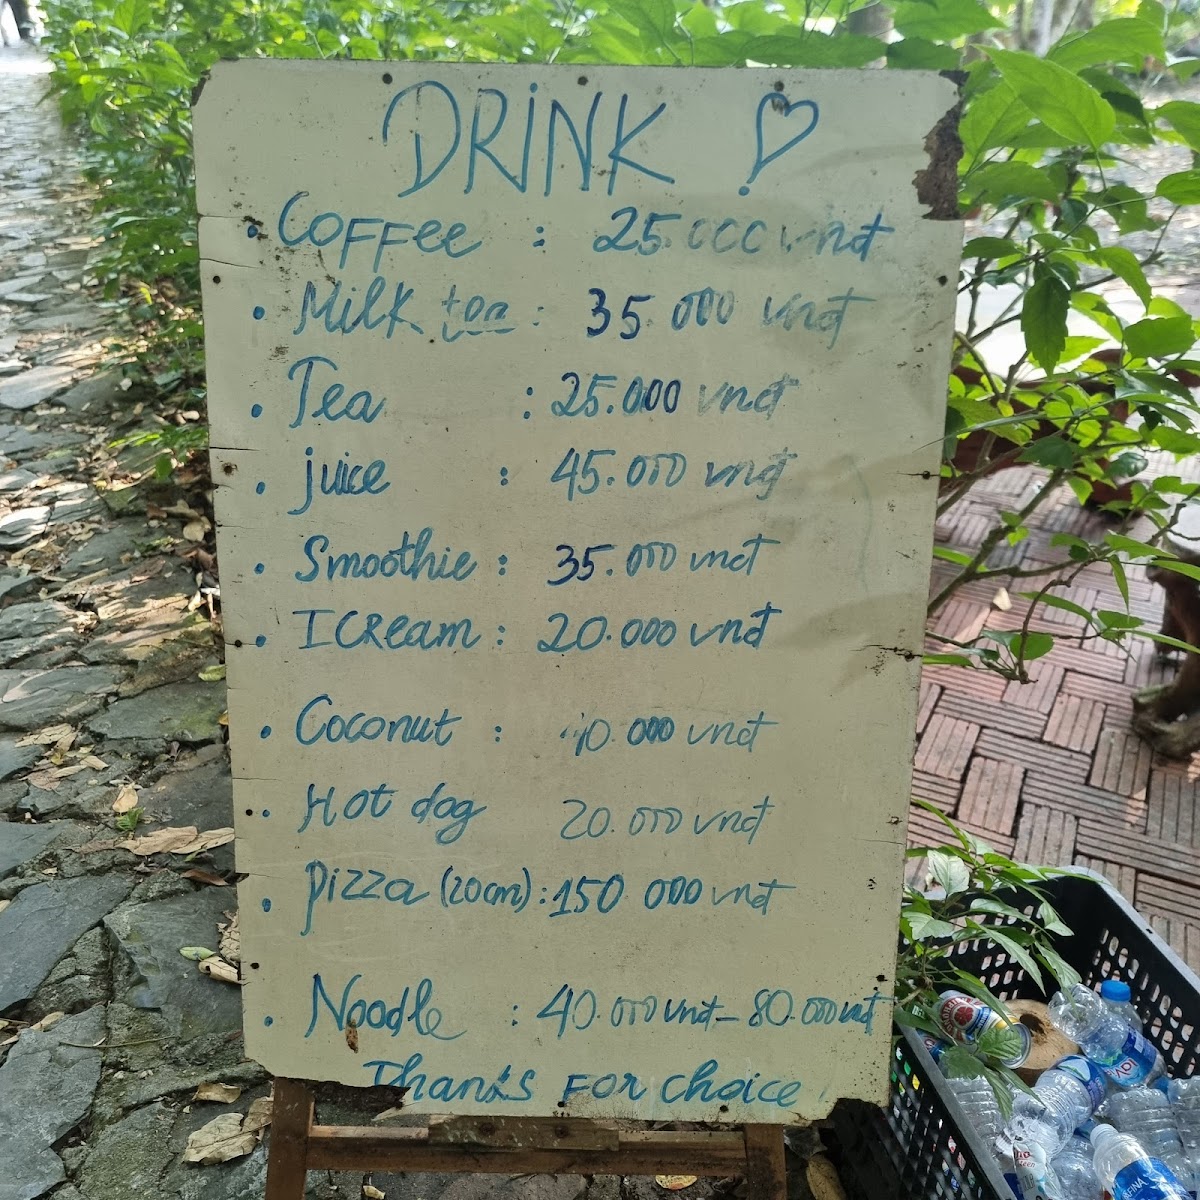 DRINK
• Coffee : 25.000 vnđ
• Milk tea : 35.000 vnđ
• Tea : 25.000 vnđ
• juice : 45.000 vnđ
• Smoothie : 35.000 vnđ
• ICReam : 20.000 vnđ
• Coconut : 000 vnđ
• Hot dog 20.000 vnđ
• Pizza (20cm) : 150 000 vnđ
• Noodle : 40.000 vnđ - 80.000 vnđ
Thanks FOR choice